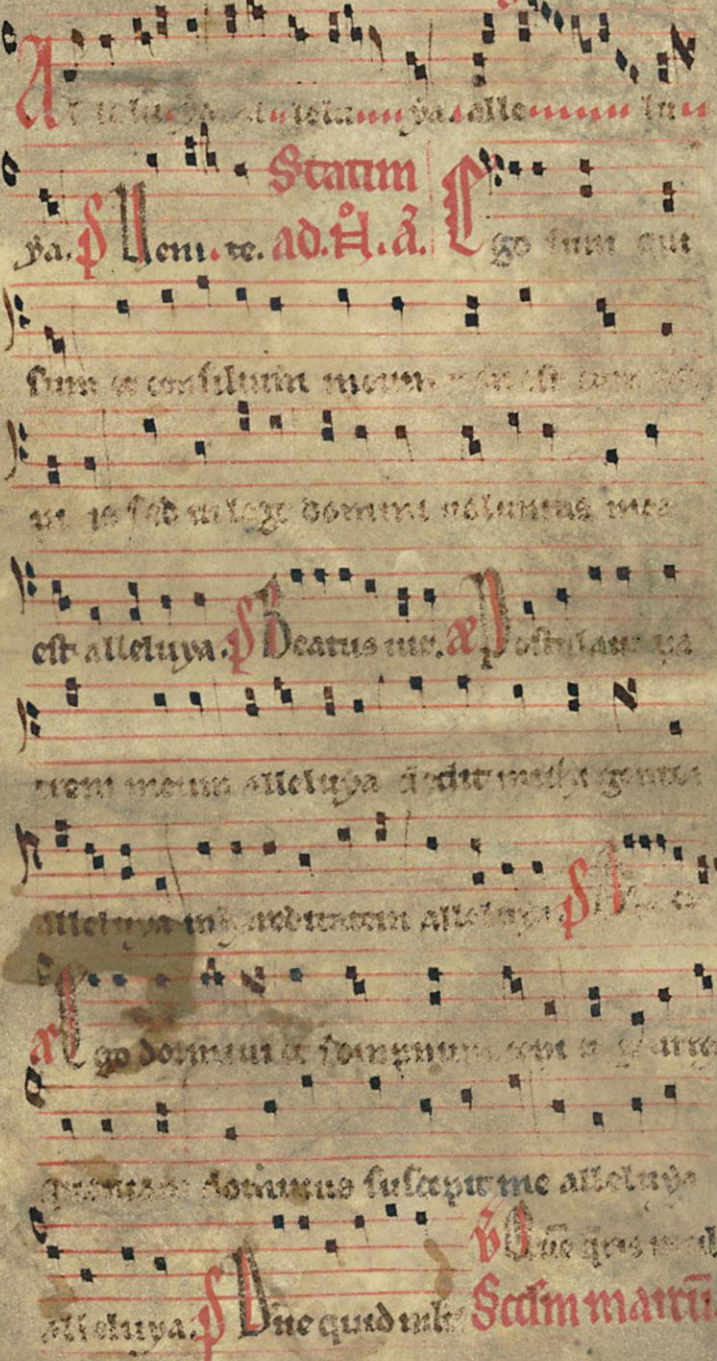 Al le luya al leluya. alle lu
ya. ps Uenite. Statim ad. N. a. Ego sum qui
sum et consilium meum non est cum im
pi is sed in lege domini uoluntas mea
est alleluya. ps Beatus uir. a Postulaui pa
trem meum alleluya dedit michi gentes
alleluya in hereditatem alleluya. ps
a Ego dormiui et sompnum cepi et
quoniam dominus suscepit me alleluya
alleluya. ps Dne quid mlti
Scdm marcu